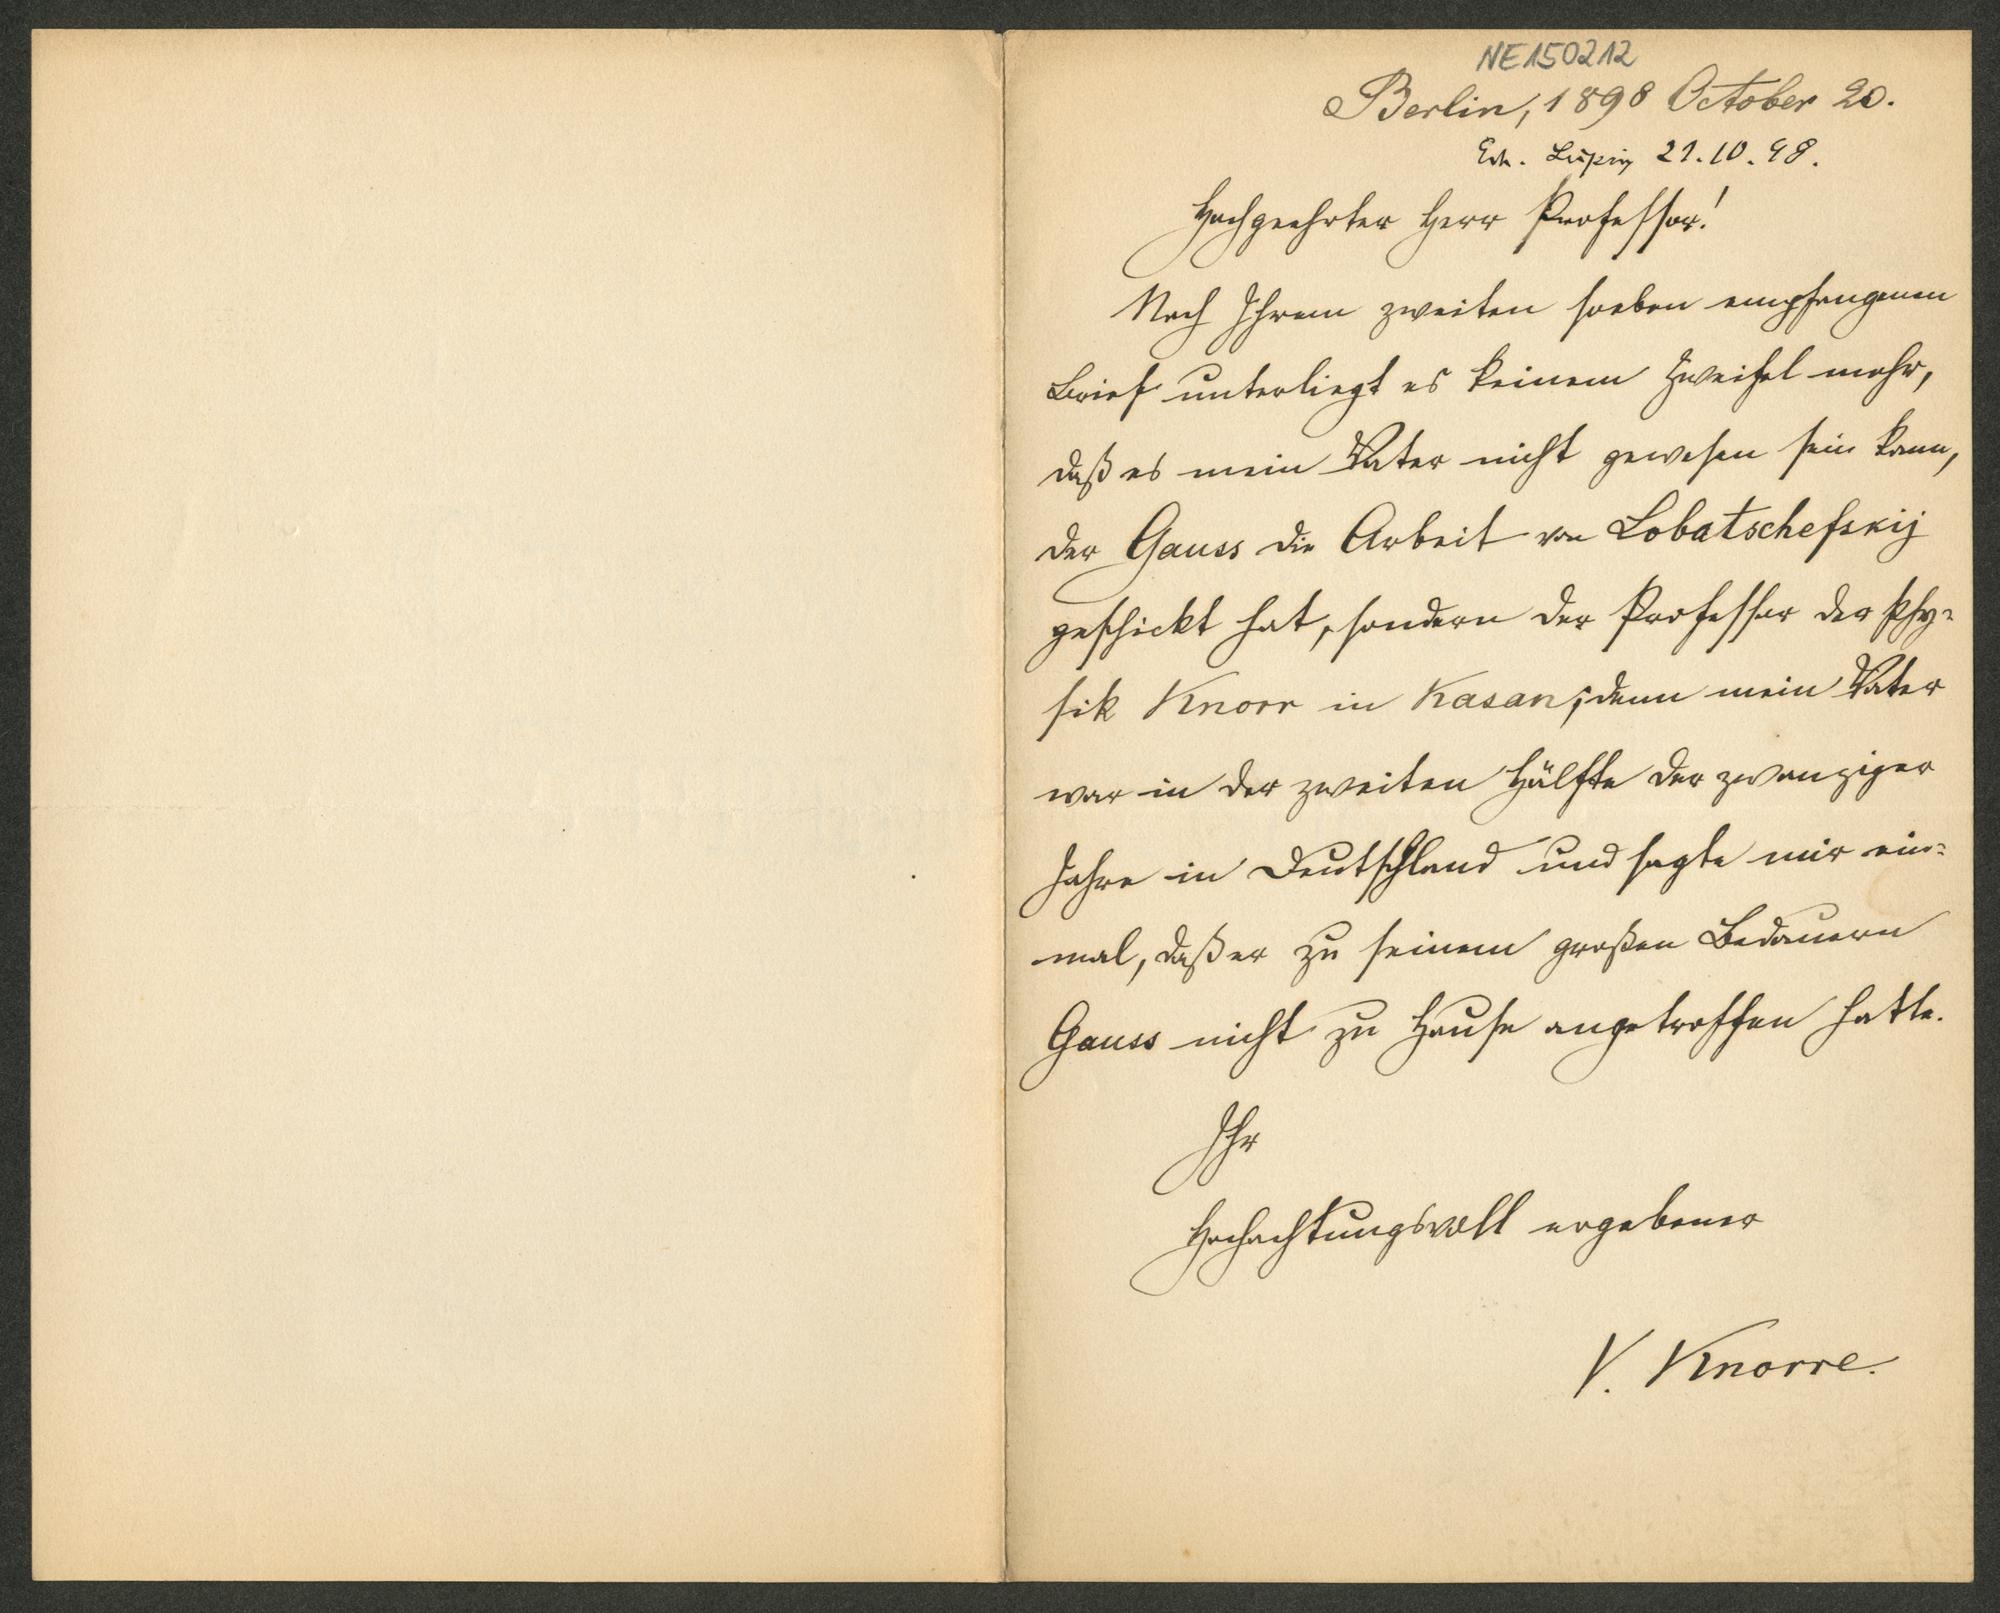 NE150212
Berlin, 1898 October 20.
Erh. Leipzig 21.10.98.
Hochgeehrter Herr Professor!
Nach Ihrem zweiten soeben empfangenen
Brief unterliegt es keinem Zweifel mehr,
daß es mein Vater nicht gewesen sein kann,
der Gauss die Arbeit von Lobatschefskij
geschickt hat, sondern der Professor der Phy-
sik Knorr in Kasan; denn mein Vater
war in der zweiten Hälfte der zwanziger
Jahre in Deutschland und sagte mir ein-
mal, daß er zu seinem großen Bedauern
Gauss nicht zu Hause angetroffen hatte.
Ihr
Hochachtungsvoll ergebener
V. Knorre.